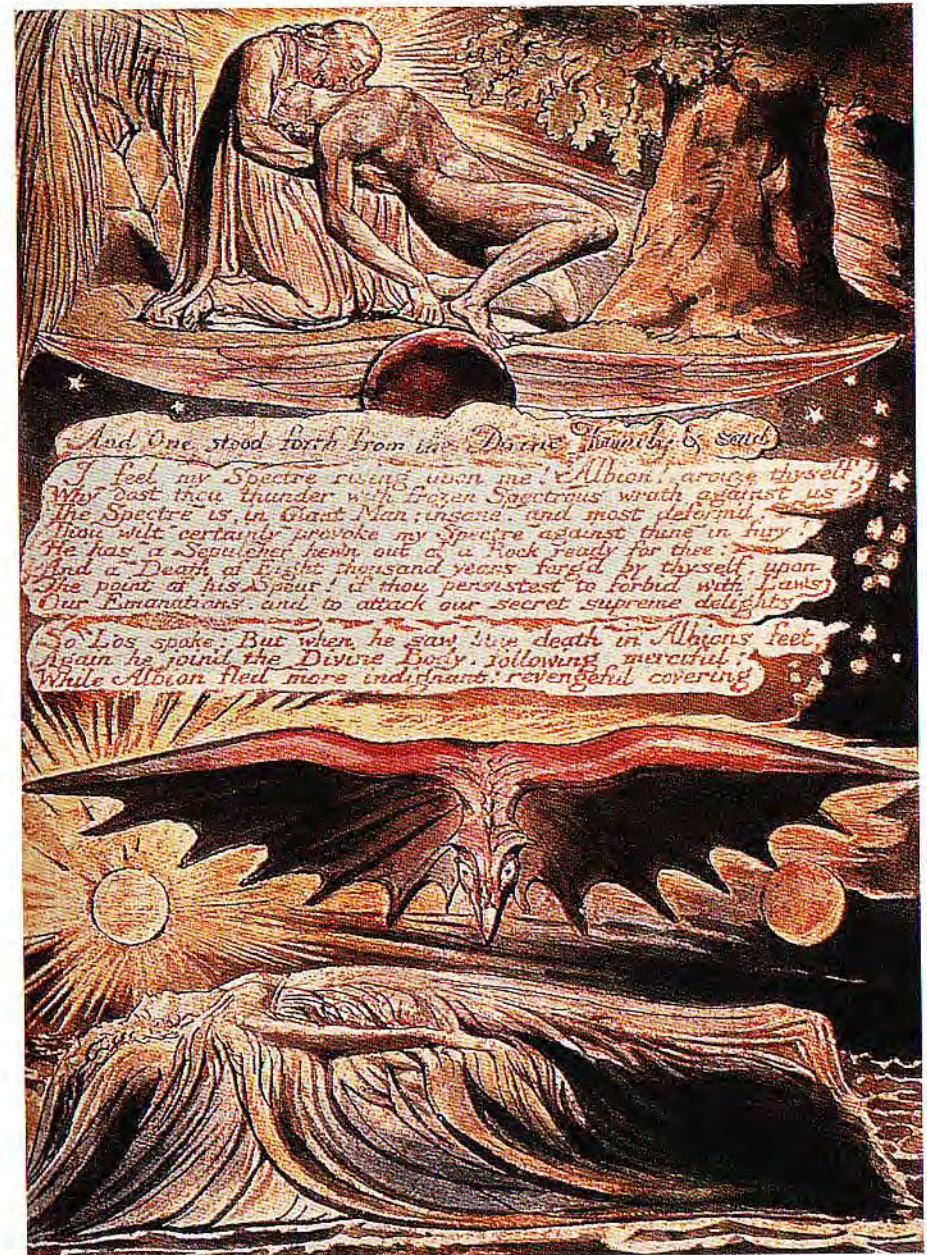 And One stood forth from the Divine Family & said
I feel my Spectre rising upon me! Albion! arouze thyself!
Why dost thou thunder with frozen Spectrous wrath against us
The Spectre is, in Giant Man; insane, and most deform'd.
Thou wilt certainly provoke my Spectre against thine in fury!
He has a Sepulcher hewn out of a Rock ready for thee:
And a Death of Eight thousand years forg'd by thyself, upon
The point of his Spear! if thou persistest to forbid with Laws
Our Emanations, and to attack our secret supreme delights
So Los spoke: But when he saw blue death in Albions feet,
Again he join'd the Divine Body, following merciful;
While Albion fled more indignant! revengeful covering